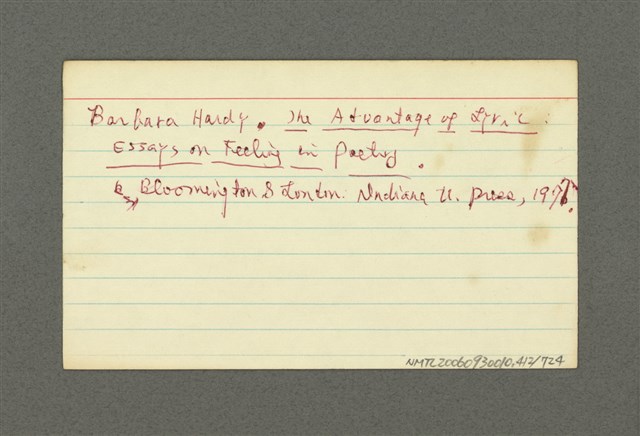 Barbara Hardy. The Advantage of Lyric:
Essays on Feeling in Poetry.
Bloomington & London: Indiana U. Press, 1977.
NMTL20060930010.412/724